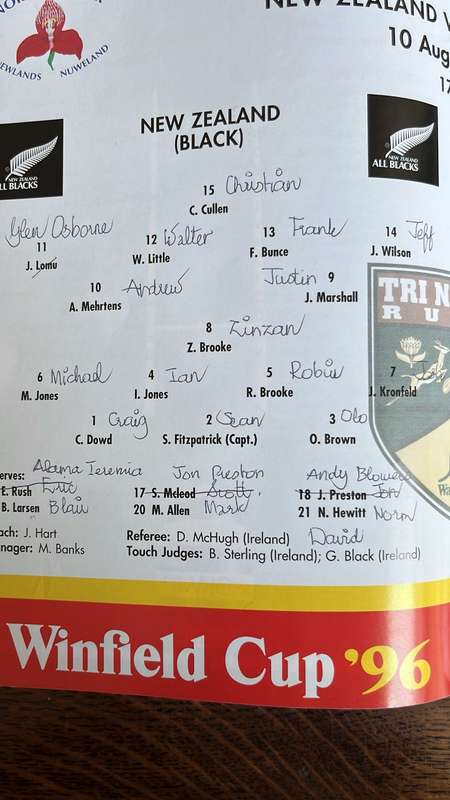 NEWLANDS NUWELAND
NEW ZEALAND V
10 Aug
17
NEW ZEALAND
(BLACK)
NEW ZEALAND
ALL BLACKS
NEW ZEALAND
ALL BLACKS
15 Christian
C. Cullen
Glen Osborne
11
J. Lomu
12 Walter
W. Little
13 Frank
F. Bunce
14 Jeff
J. Wilson
10 Andrew
A. Mehrtens
Justin 9
J. Marshall
TRI N
RU
8 Zinzan
Z. Brooke
6 Michael
M. Jones
4 Ian
I. Jones
5 Robin
R. Brooke
7
J. Kronfeld
1 Craig
C. Dowd
2 Sean
S. Fitzpatrick (Capt.)
3 Olo
O. Brown
erves: Alama Ieremia Jon Preston Andy Blowers
E. Rush Eric 17 S. Mcleod Scott. 18 J. Preston Jon
B. Larsen Blair 20 M. Allen Mark 21 N. Hewitt Norm
ach: J. Hart Referee: D. McHugh (Ireland) David
nager: M. Banks Touch Judges: B. Sterling (Ireland); G. Black (Ireland)
Winfield Cup '96